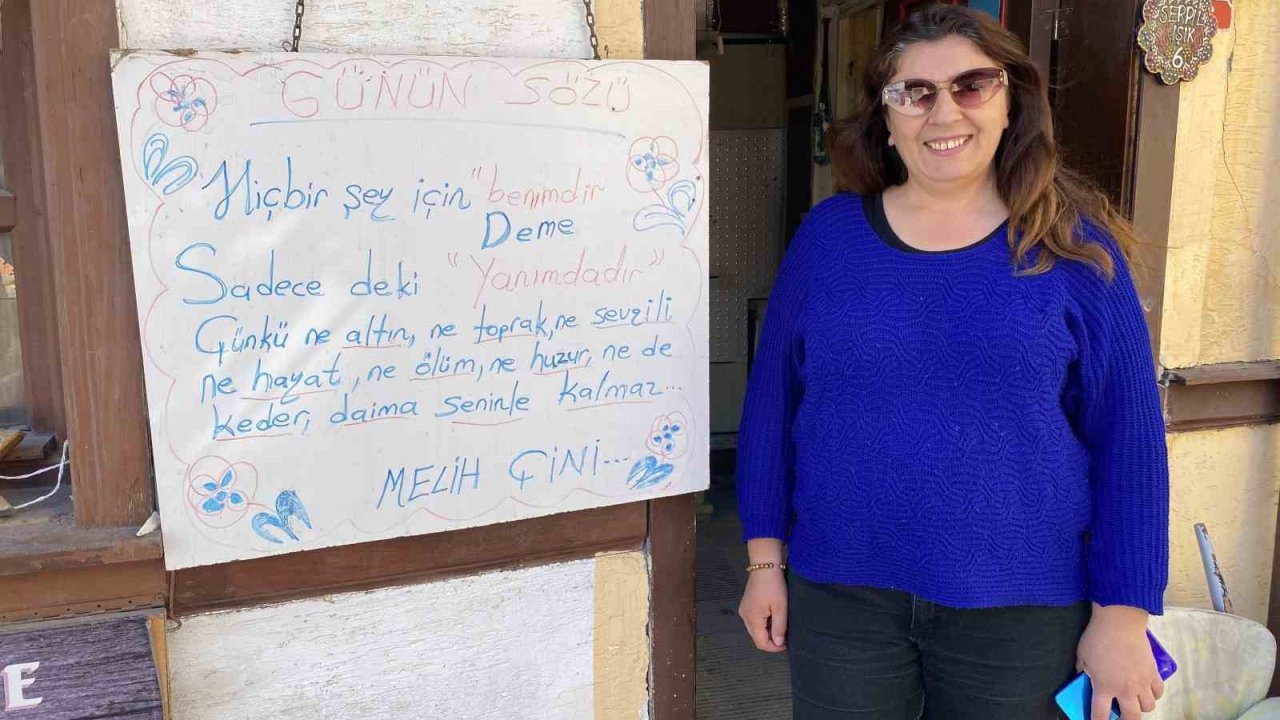 GÜNÜN SÖZÜ
Hiçbir şey için "benimdir
Deme
Sadece deki "Yanımdadır"
Günkü ne altın, ne toprak, ne sevgili
ne hayat, ne ölüm, ne huzur, ne de
keder, daima seninle kalmaz...
MELİH ÇİNİ...
SERPİL
IŞIK
6
E